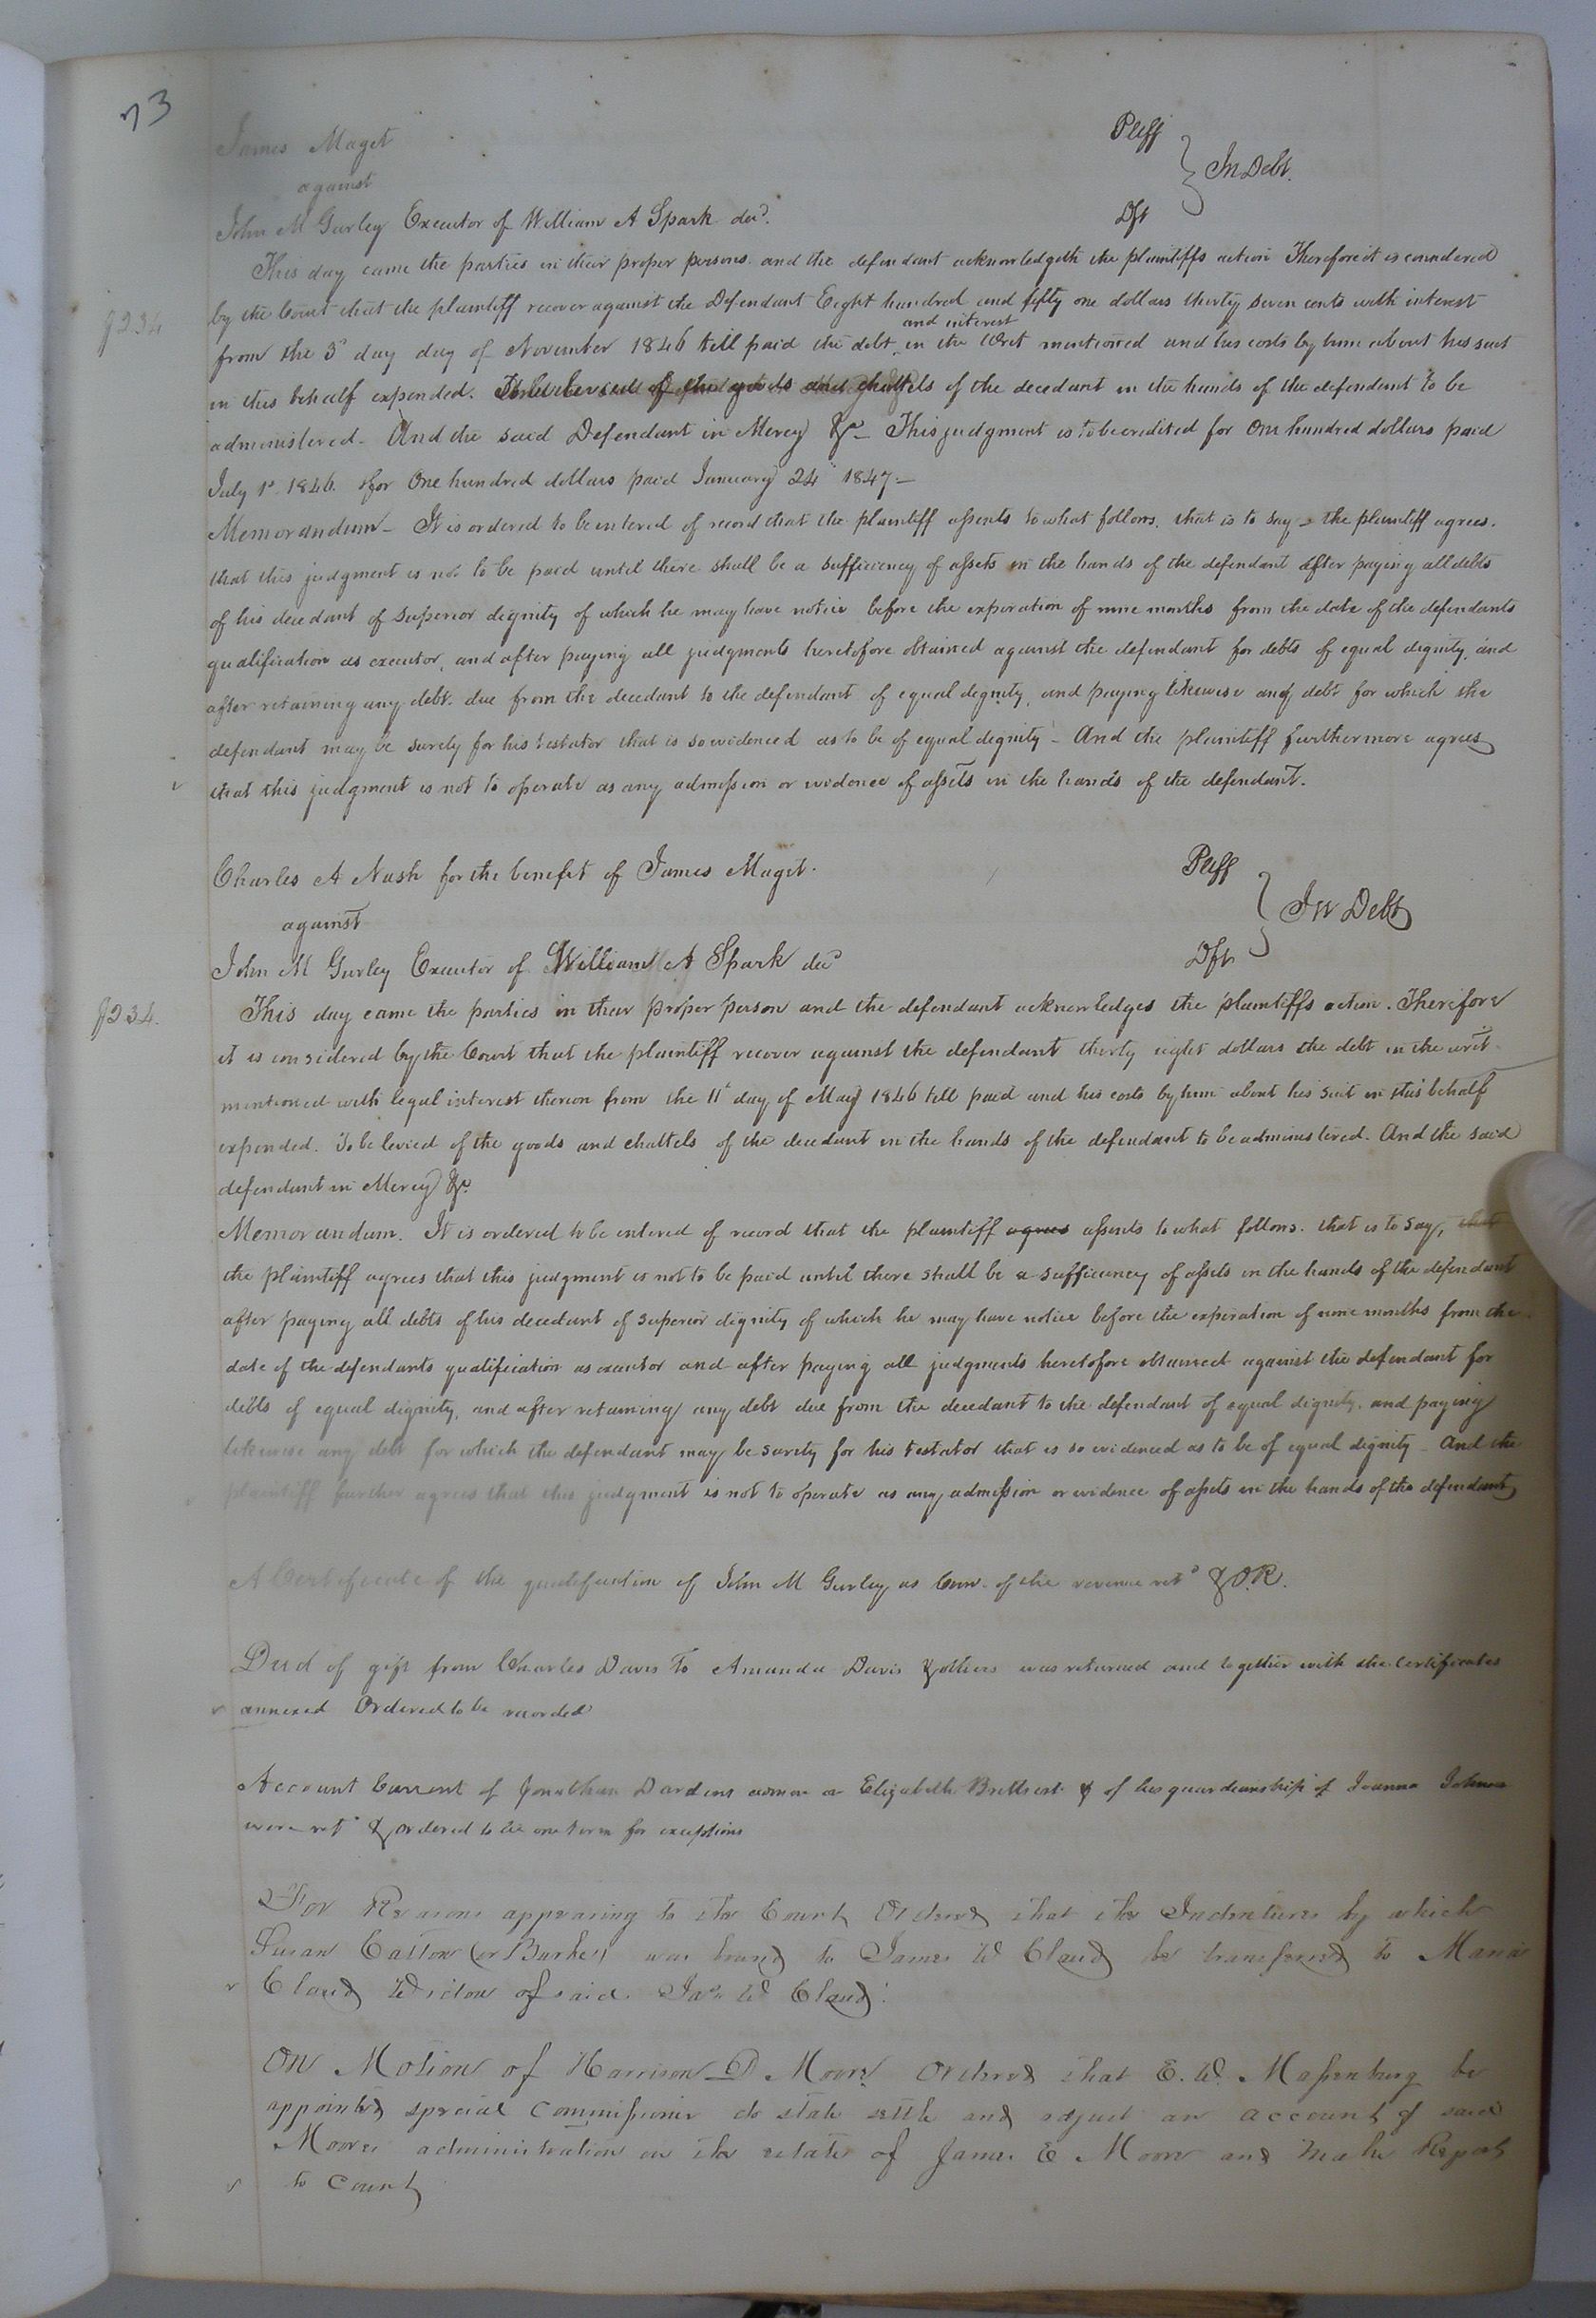 73
James Maget Pltff
against In Debt.
John M Gurley Executor of William A Spark decd. Dft
This day came the parties in their proper persons and the defendant acknowledgeth the plaintiffs action Therefore it is considered
by the Court that the plaintiff recover against the Defendant Eight hundred and fifty one dollars thirty seven cents with interest
and interest
from the 3d day day of November 1846 till paid the debt in the Writ mentioned and his costs by him about his suit
in this behalf expended. To be levied of the goods and chattels of the decedant in the hands of the defendant to be
administered - And the said Defendant in Mercy &c - This judgment is to be credited for One hundred dollars paid
July 1st 1846. & for One hundred dollars paid January 24th 1847 -
Memorandum - It is ordered to be entered of record that the plaintiff assents to what follows. that is to say - the plaintiff agrees.
that this judgment is not to be paid until there shall be a sufficiency of assets in the hands of the defendant after paying all debts
of his decedant of superior dignity of which he may have notice before the expiration of nine months from the date of the defendants
qualification as executor, and after paying all judgments heretofore obtained against the defendant for debts of equal dignity, and
after retaining any debt. due from the decedant to the defendant of equal dignity, and paying likewise any debt for which the
defendant may be surety for his testator that is so evidenced as to be of equal dignity - And the plaintiff furthermore agrees
that this judgment is not to operate as any admission or evidence of assets in the hands of the defendant.
Charles A Nash for the benefit of James Maget. Pltff
against In Debt
John M Gurley Executor of William A Spark decd Dft
This day came the parties in their proper person and the defendant acknowledges the plaintiffs action. Therefore
it is considered by the Court that the plaintiff recover against the defendant thirty eight dollars the debt in the writ
mentioned with legal interest thereon from the 11th day of May 1846 till paid and his costs by him about his suit in this behalf
expended. To be levied of the goods and chattels of the decedant in the hands of the defendant to be administered. And the said
defendant in Mercy &c.
Memorandum. It is ordered to be entered of record that the plaintiff agrees assents to what follows. that is to say, that
the plaintiff agrees that this judgment is not to be paid until there shall be a sufficiency of assets in the hands of the defendant
after paying all debts of his decedant of superior dignity of which he may have notice before the expiration of nine months from the
date of the defendants qualification as executor and after paying all judgments heretofore obtained against the defendant for
debts of equal dignity, and after retaining any debt due from the decedant to the defendant of equal dignity, and paying
likewise any debt for which the defendant may be surety for his testator that is so evidenced as to be of equal dignity - And the
plaintiff further agrees that this judgment is not to operate as any admission or evidence of assets in the hands of the defendant
A Certificate of the qualification of John M Gurley as Com. of the revenue retd & O.R.
Deed of gift from Charles Davis to Amanda Davis & others was returned and together with the certificates
annexed Ordered to be recorded
Account Current of Jonathan Dardens admon on Elizabeth & of his guardianship of Joanna Johnson
were retd & ordered to lie one term for exceptions
For Reasons appearing to the Court Ordered that the Indentures by which
Susan (or Barker) was bound to James W Claud be transferred to Maria
Claud Widow of said Jas W Claud.
On Motion of Harrison D Moore Ordered that E. W. Massenburg be
appointed special Commissioner do state settle and adjust an account of said
Moores administration on the estate of James E Moore and make Report
to Court